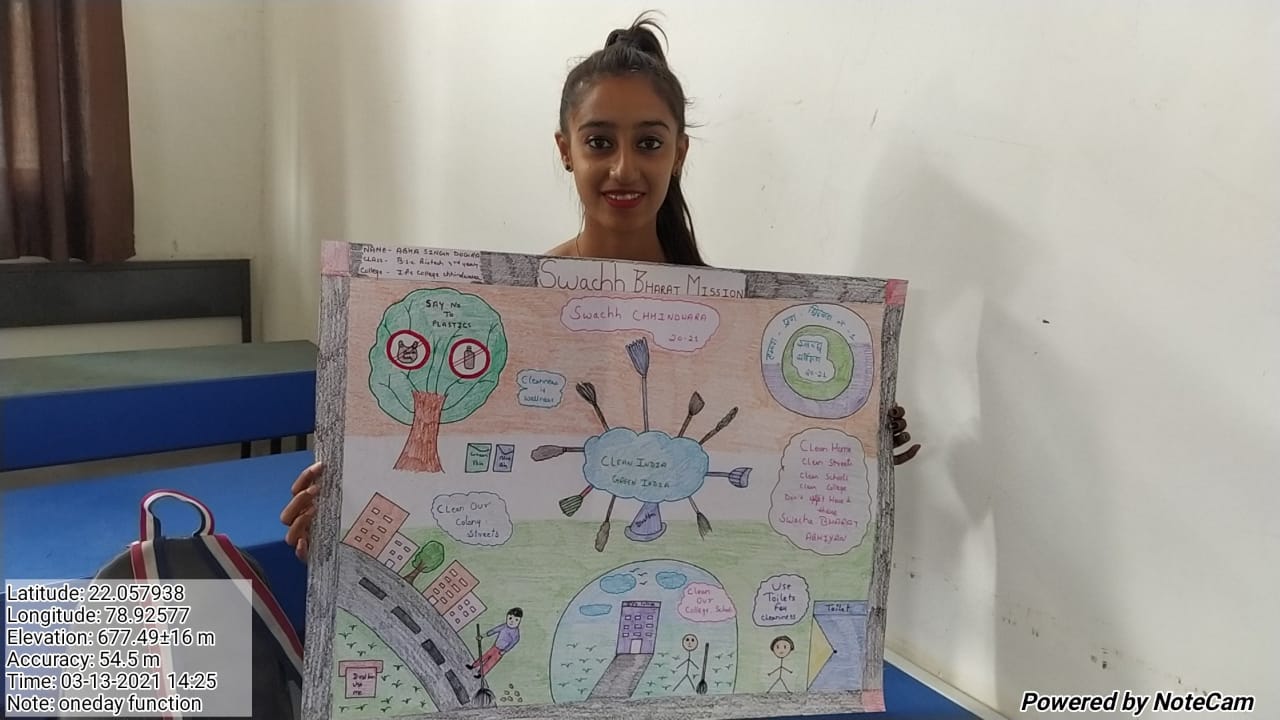 NAME - ABHA SINGH
CLASS - B.Sc Biotech year
College - IPS College Chhindwara
Swachh BHARAT MISSION
SAY No
To
PLASTICS
Swachh CHHINDWARA
20-21
स्वच्छ
20-21
Cleanness
is
wellness
CLEAN INDIA
GREEN INDIA
Clean Home
Clean Streets
Clean School
Clean College
Swachh BHARAT
ABHIYAN
Clean Our
Colony
Streets
Dustbin
Clean
Our
College, School
Use
Toilets
For
cleanness
Toilet
use
me
Latitude: 22.057938
Longitude: 78.92577
Elevation: 677.49±16 m
Accuracy: 54.5 m
Time: 03-13-2021 14:25
Note: oneday function
Powered by NoteCam